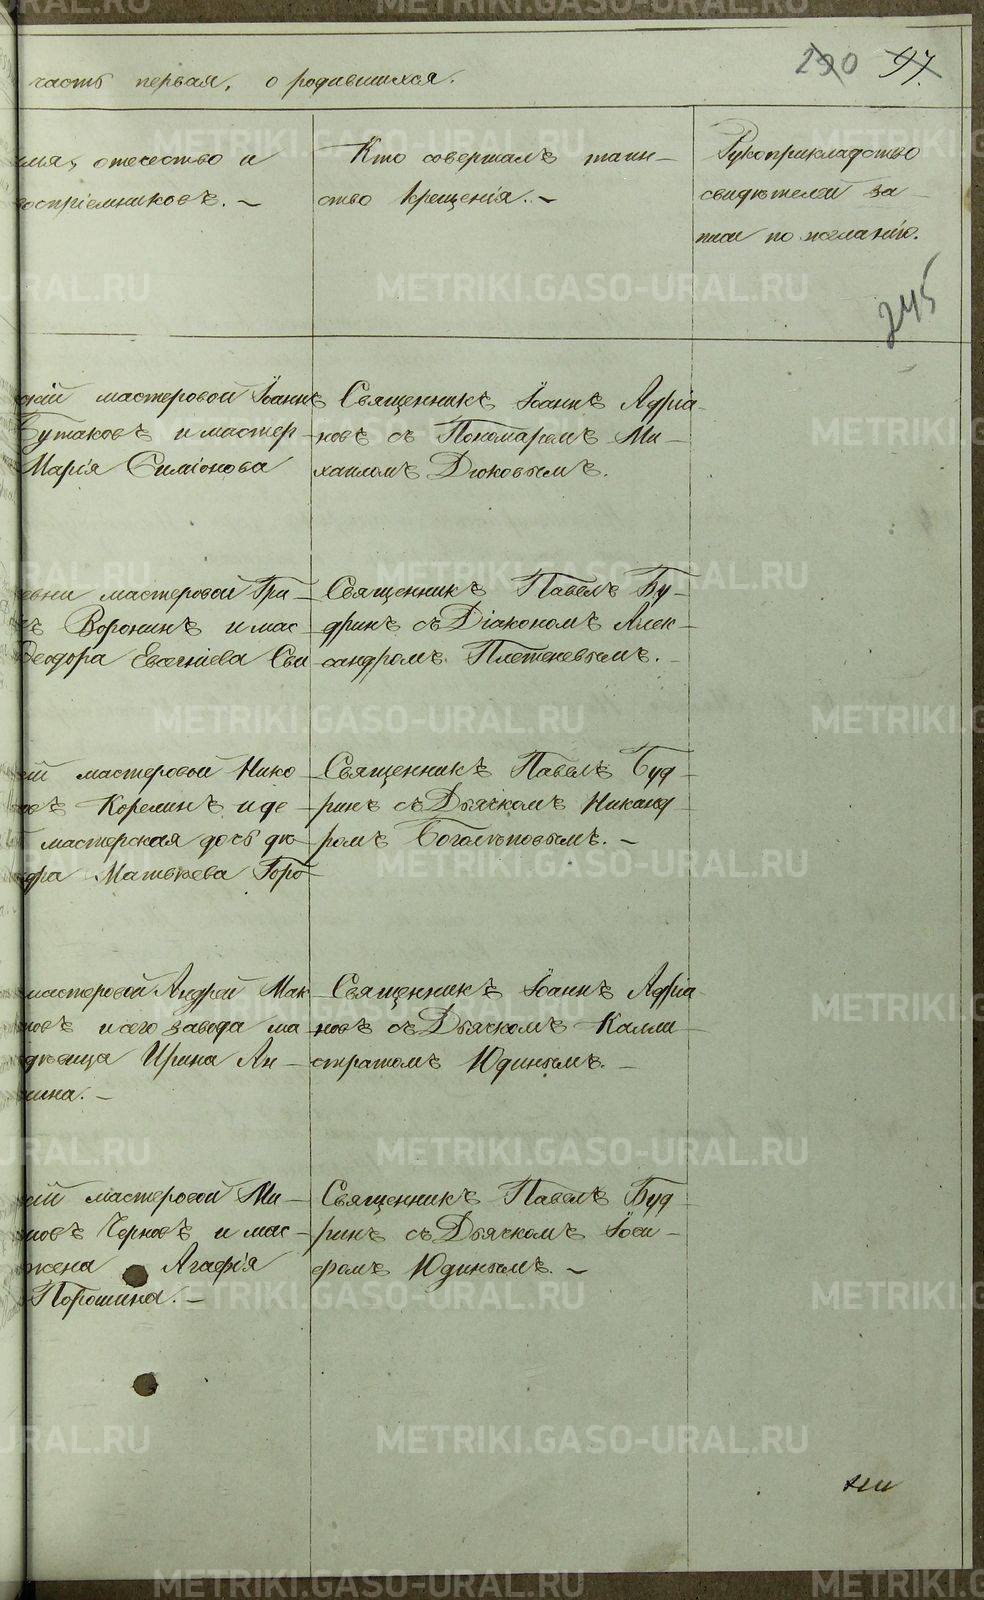 часть первая, о родившихся.
290 97.
имя, отечество и
воспріемниковъ. —
Кто совершалъ таин-
ство крещенія. —
Рукоприкладство
свидѣтелей за-
писи по желанію.
245
мастеровой Іоаннъ
Бутаковъ и мастер
Марія Симіонова
Священникъ Іоаннъ Адріа-
новъ съ Пономаремъ Ми-
хаиломъ Дюковымъ.
мастеровой Гри-
Воронинъ и мас-
Ѳеодора Евсегніева Сви
Священникъ Павелъ Бу-
дринъ съ Діакономъ Алек-
сандромъ Плетеневымъ. —
мастеровой Нико
Корелинъ и де-
мастерская дочь дѣ-
Матвѣева Горо-
Священникъ Павелъ Буд-
ринъ съ Дьячкомъ Никанд-
ромъ Боголѣповымъ. —
мастеровой Андрей Мак-
новъ и сего завода ма-
дѣвица Ирина Ан-
Священникъ Іоаннъ Адріа-
новъ съ Дьячкомъ Калли-
стратомъ Юдинымъ. —
мастеровой Ми-
Черновъ и мас-
жена Агафія
Порошина. —
Священникъ Павелъ Буд-
ринъ съ Дьячкомъ Іоси-
фомъ Юдинымъ. —
METRIKI.GASO-URAL.RU